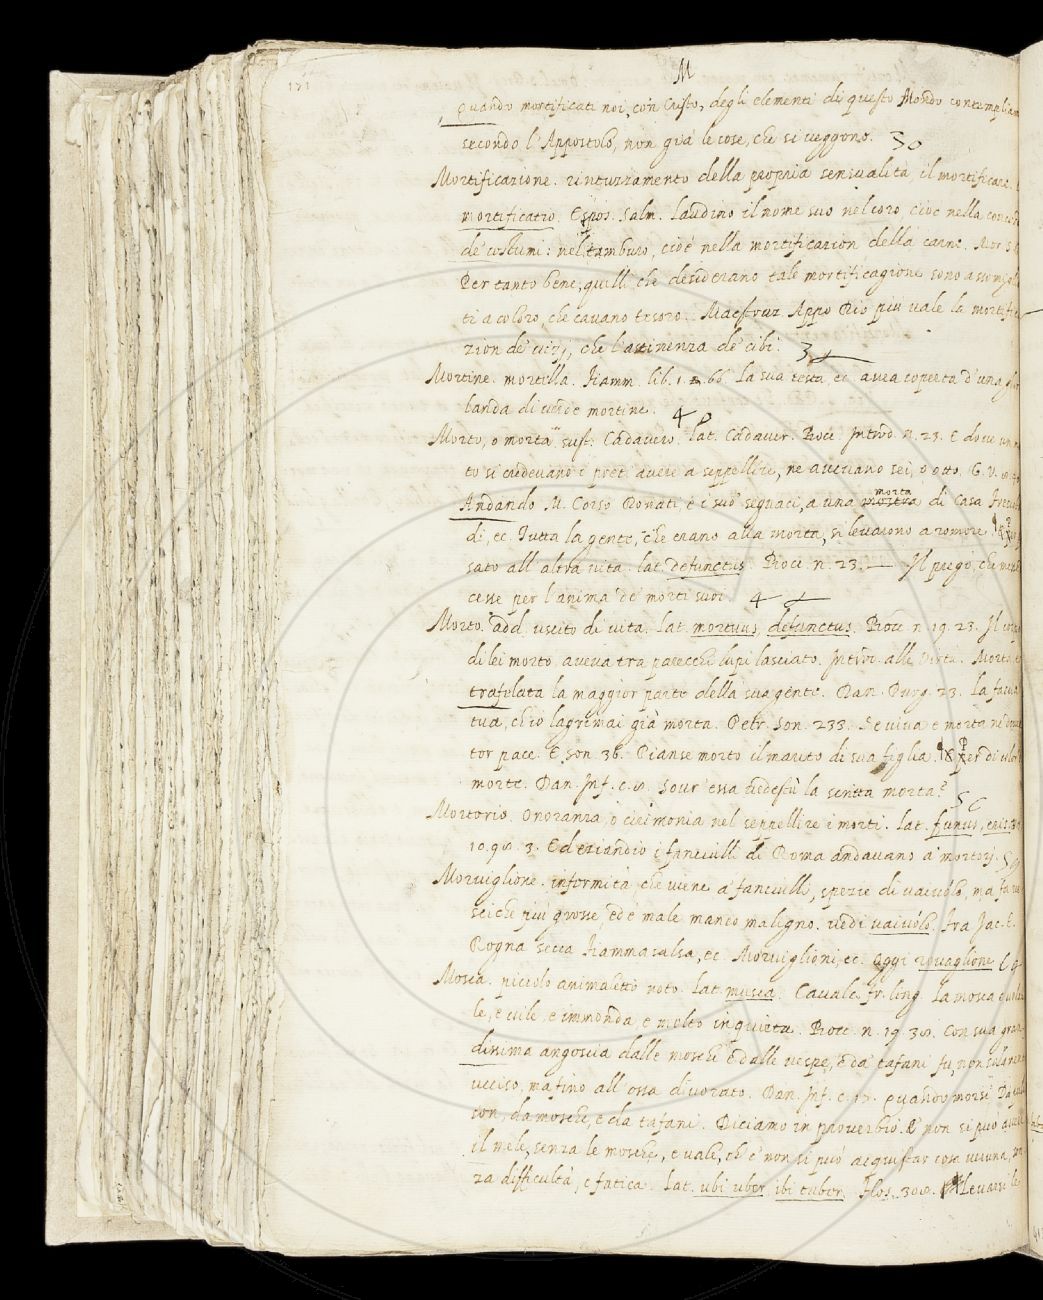 M
Quando mortificati noi, con Cristo, degli elementi di questo Mondo contempliam
secondo l'Appostolo, non già le cose, che si veggono. 30
Mortificazione. rintuzzamento della propria sensualità, il mortificare.
mortificatio. Espos. Salm. Laudino il nome suo nel coro, cioè nella concor
de' costumi: nel tamburo, cioè nella mortificazion della carne. Mor. S.
Per tanto bene, quelli, che desiderano tale mortificagione sono assomigl
ti a coloro, che cavano tesoro. Maestruz. Appo Dio più vale la mortific
zion de' vizj, che l'astinenza de' cibi.
Mortine. mortella. Fiamm. lib. 1. 66. La sua testa, ec. avea coperta d'una
banda di verde mortine.
Morto, o morta sust. Cadavero. lat. Cadaver. Bocc. Introd. n. 23. E dove un
to si credevano i preti avere a seppellire, ne avevano sei, o otto. G. V.
Andando M. Corso Donati, e i suo' seguaci, a una mostra morta di Casa Fresco
di, ec. Tutta la gente, che erano alla morta, si levarono a romore.
sato all'altra vita. lat. defunctus. Bocc. n. 23. Il pregò, che
cesse per l'anima de' morti suoi.
Morto. add. uscito di vita. lat. mortuus, defunctus. Bocc. n. 19. 23. Il
di lei morto aveva tra parecchi lupi lasciato. Introd. alle Virtù. Morta, e
trafelata la maggior parte della sua gente. Dan. Purg. 23. La faccia
tua, ch'io lagrimai già morta. Petr. Son. 233. Se viva e morta ne
tor pace. E Son. 36. Pianse morto il marito di sua figlia. Per di color
morte. Dan. Inf. c. 8. Sour' essa vedestù la scritta morta.
Mortorio. Onoranza, o cirimonia nel seppellire i morti. lat. funus, eris.
10. 98. 3. Ed eziandio i fanciulli di Roma andavano a' mortorj.
Morviglione. infermità che viene a' fanciulli, spezie di vaiuolo, ma fa ve
sciche più grosse, ed è male manco maligno. vedi vaiuolo. Fra Jac. T.
Rogna secca Fiamma salsa, ec. Morviglioni, ec. Oggi ravaglione
Mosca. piccolo animaletto noto. lat. musca. Cavalc. fr. ling. La mosca
le, è vile e immonda, e molto inquieta. Bocc. n. 19. 38. Con sua gran
dissima angoscia dalle mosche e dalle vespe, e da' tafani fu, non solamente
ucciso, ma fino all'ossa divorato. Dan. Inf. c. 17. Quando morsi
son, da mosche, e da tafani. Diciamo in proverbio. E' non si può avere
il mele, senza le mosche, e vale, ch'e' non si può acquistar cosa veruna,
za difficultà, e fatica. Lat. ubi uber ibi tuber. Flos. 308. Levarsi le